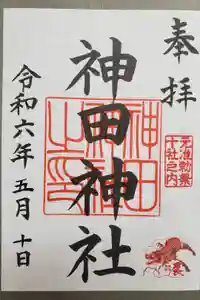 奉拝
元准勅祭
十社之内
神田神社
神田
神社
之印
令和六年五月十日